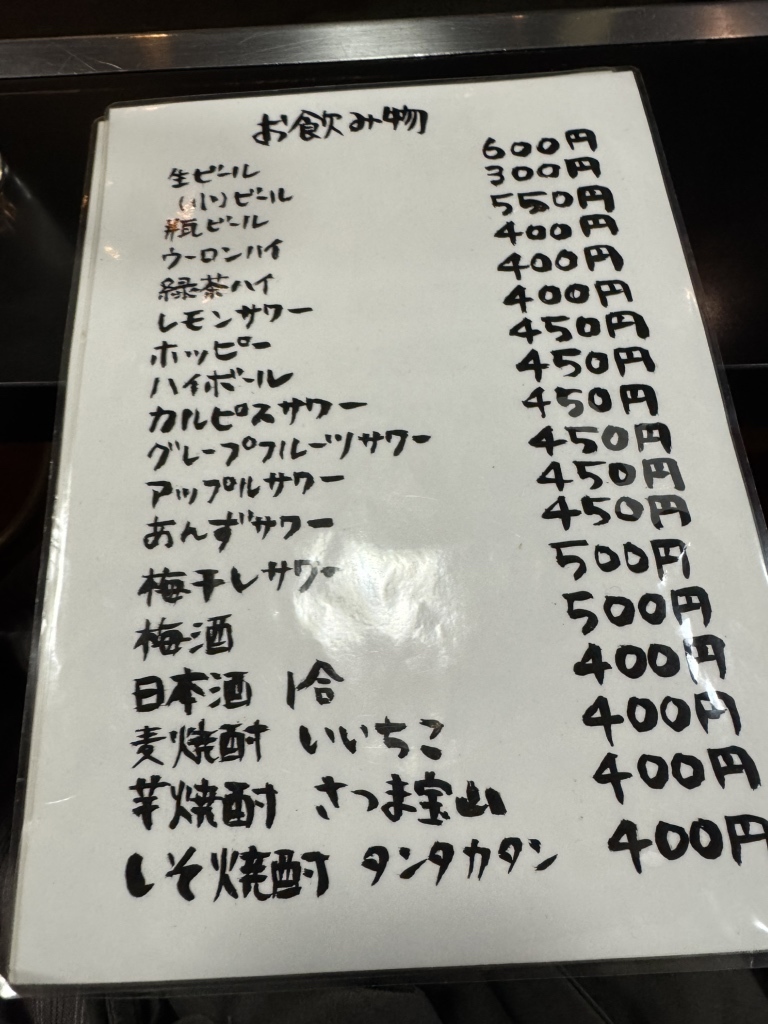 お飲み物
生ビール 600円
(小)ビール 300円
瓶ビール 550円
ウーロンハイ 400円
緑茶ハイ 400円
レモンサワー 400円
ホッピー 450円
ハイボール 450円
カルピスサワー 450円
グレープフルーツサワー 450円
アップルサワー 450円
あんずサワー 450円
梅干しサワー 500円
梅酒 500円
日本酒 1合 400円
麦焼酎 いいちこ 400円
芋焼酎 さつま宝山 400円
しそ焼酎 タンタカタン 400円